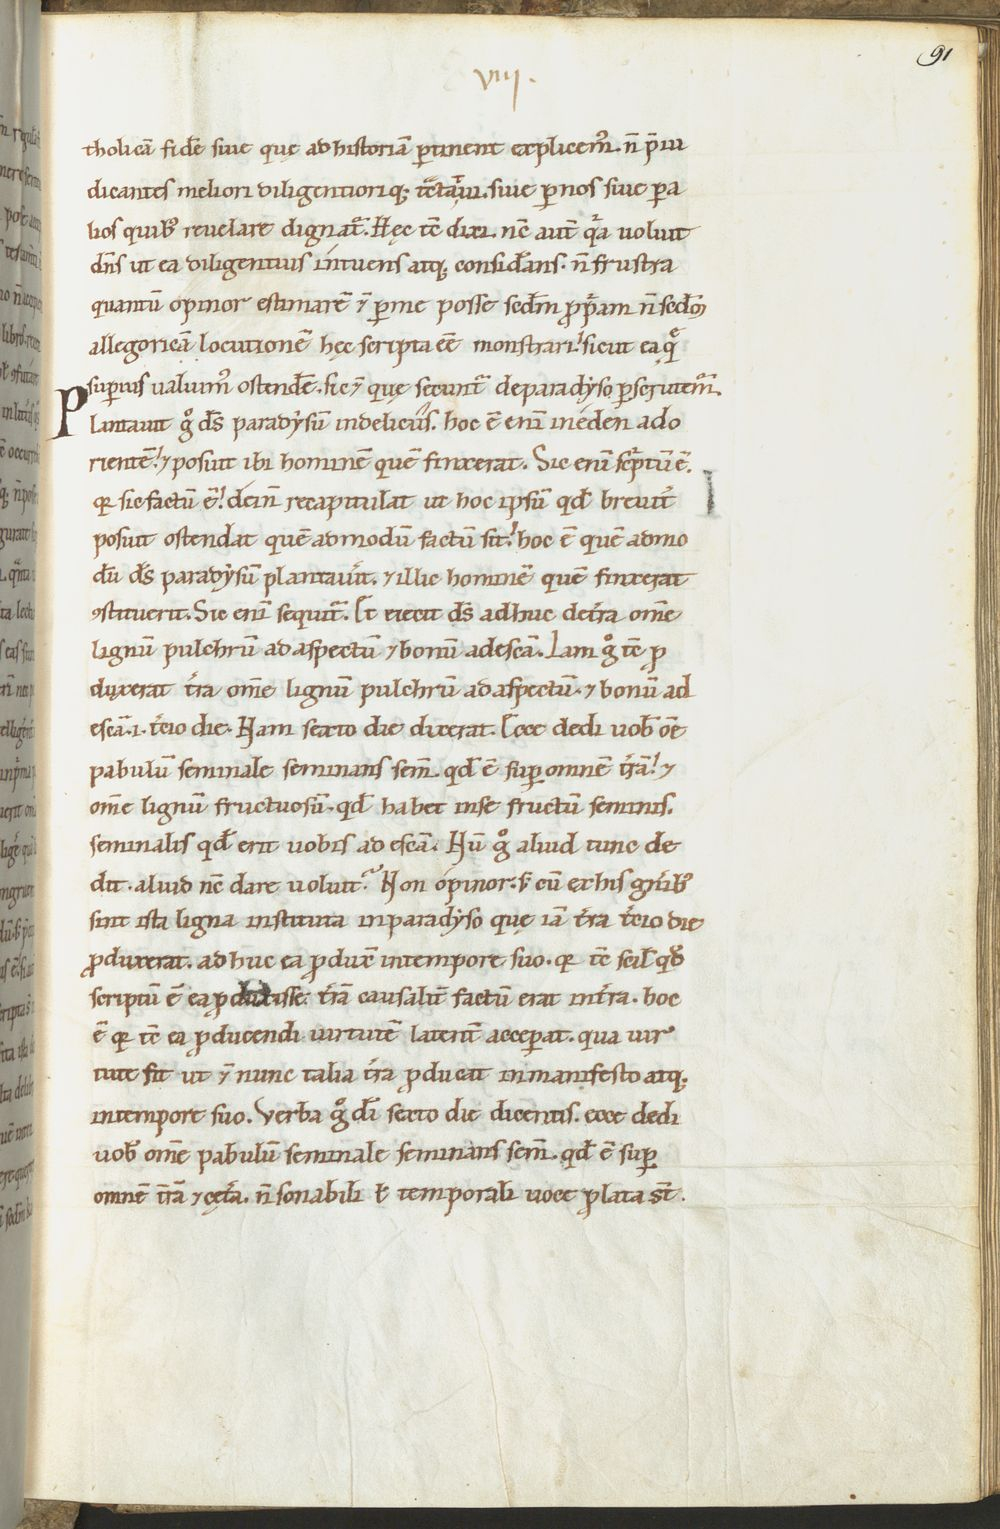 91
VIIII.
tholicā fidē siue quę ad historiā ꝑtinent explicem᷒. n̄ p̄iu
dicantes meliori diligentioriq; tc̄tat᷑ui. siue ꝑ nos siue ꝑ a
lios quib᷒ reuelare dignat᷑. Hęc tc̄ dixi. nc̄ aut̄ qͣa uoluit
dn̄s ut ea diligentius intuens atq; consid̄ans. n̄ frustra
quantū opinor estimarē ⁊ ꝑ me posse sedm̄ ꝓpͥam n̄ sedm̄
allegoricā locutionē hęc scripta eē monstrari. sicut ea qͣ
suꝑius ualuim᷒ ostendē. sic ⁊ quę secunt᷑ de paradyso ꝑscrutem᷒.
Plantauit gͦ ds̄ paradysū in deliciis. hoc ē enī in eden ad o
rientē. ⁊ posuit ibi hominē quē finxerat. Sic enī scͥptū ē.
qr sic factū ē. dein̄ recapitulat ut hoc ipsū qd̄ breuit᷑
posuit ostendat quēadmodū factū sit. hoc ē quēadmo
dū ds̄ paradysū plantauit. ⁊ illic hominē quē finxerat
ꝯstituerit. Sic enī sequit᷑. Et eiecit ds̄ adhuc de tr̄a om̄e
lignū pulchrū ad aspectū ⁊ bonū ad escā. Iam gͦ tc̄ ꝓ
duxerat tr̄a om̄e lignū pulchrū ad aspectū. ⁊ bonū ad
escā .i. tr̄cio die. Nam sexto die dixerat. Ecce dedi uob̄ om̄e
pabulū seminale seminans sem̄. qd̄ ē suꝑ omnē tr̄ā. ⁊
om̄e lignū fructuosū. qd̄ habet in se fructū seminis.
seminalis qd̄ erit uobis ad escā. Nū gͦ aliud tunc de
dit. aliud nc̄ dare uoluit? Non opinor. ꝫ cū ex his gn̄ib᷒
sint ista ligna instituta in paradyso quę iā tr̄ra tr̄cio die
ꝓduxerat. adhuc ea ꝓduxē in tempore suo. qr tc̄ scil̄ qd̄
scriptū ē ea ꝓduxisse tr̄ā causalit̄ factū erat in tr̄ra. hoc
ē qr tc̄ ea ꝓducendi uirtutē latent̄ acceꝑat. qua uir
tute fit ut ⁊ nunc talia tr̄a ꝓducat in manifesto atq;
in tempore suo. Verba gͦ dī sexto die dicentis. ecce dedi
uob̄ om̄e pabulū seminale seminans sem̄. qd̄ ē suꝑ
omnē tr̄ā ⁊ cęt̄a. n̄ sonabili ł temporali uoce ꝓlata st̄.